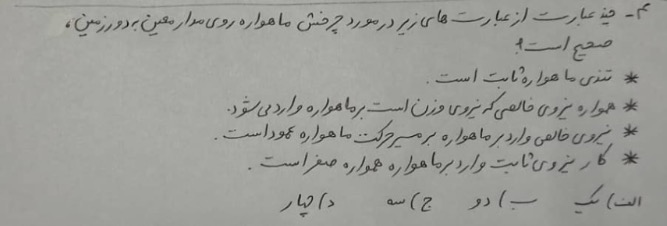 ۴- چند عبارت از عبارت های زیر در مورد چرخش ماهواره روی مدار معین به دور زمین،
صحیح است؟
* تندی ماهواره ثابت است.
* همواره نیروی خالصی که نیروی وزن است بر ماهواره وارد می شود.
* نیروی خالص وارد بر ماهواره بر مسیر حرکت ماهواره عمود است.
* کار نیروی ثابت وارد بر ماهواره همواره صفر است.
الف) یک ب) دو ج) سه د) چهار